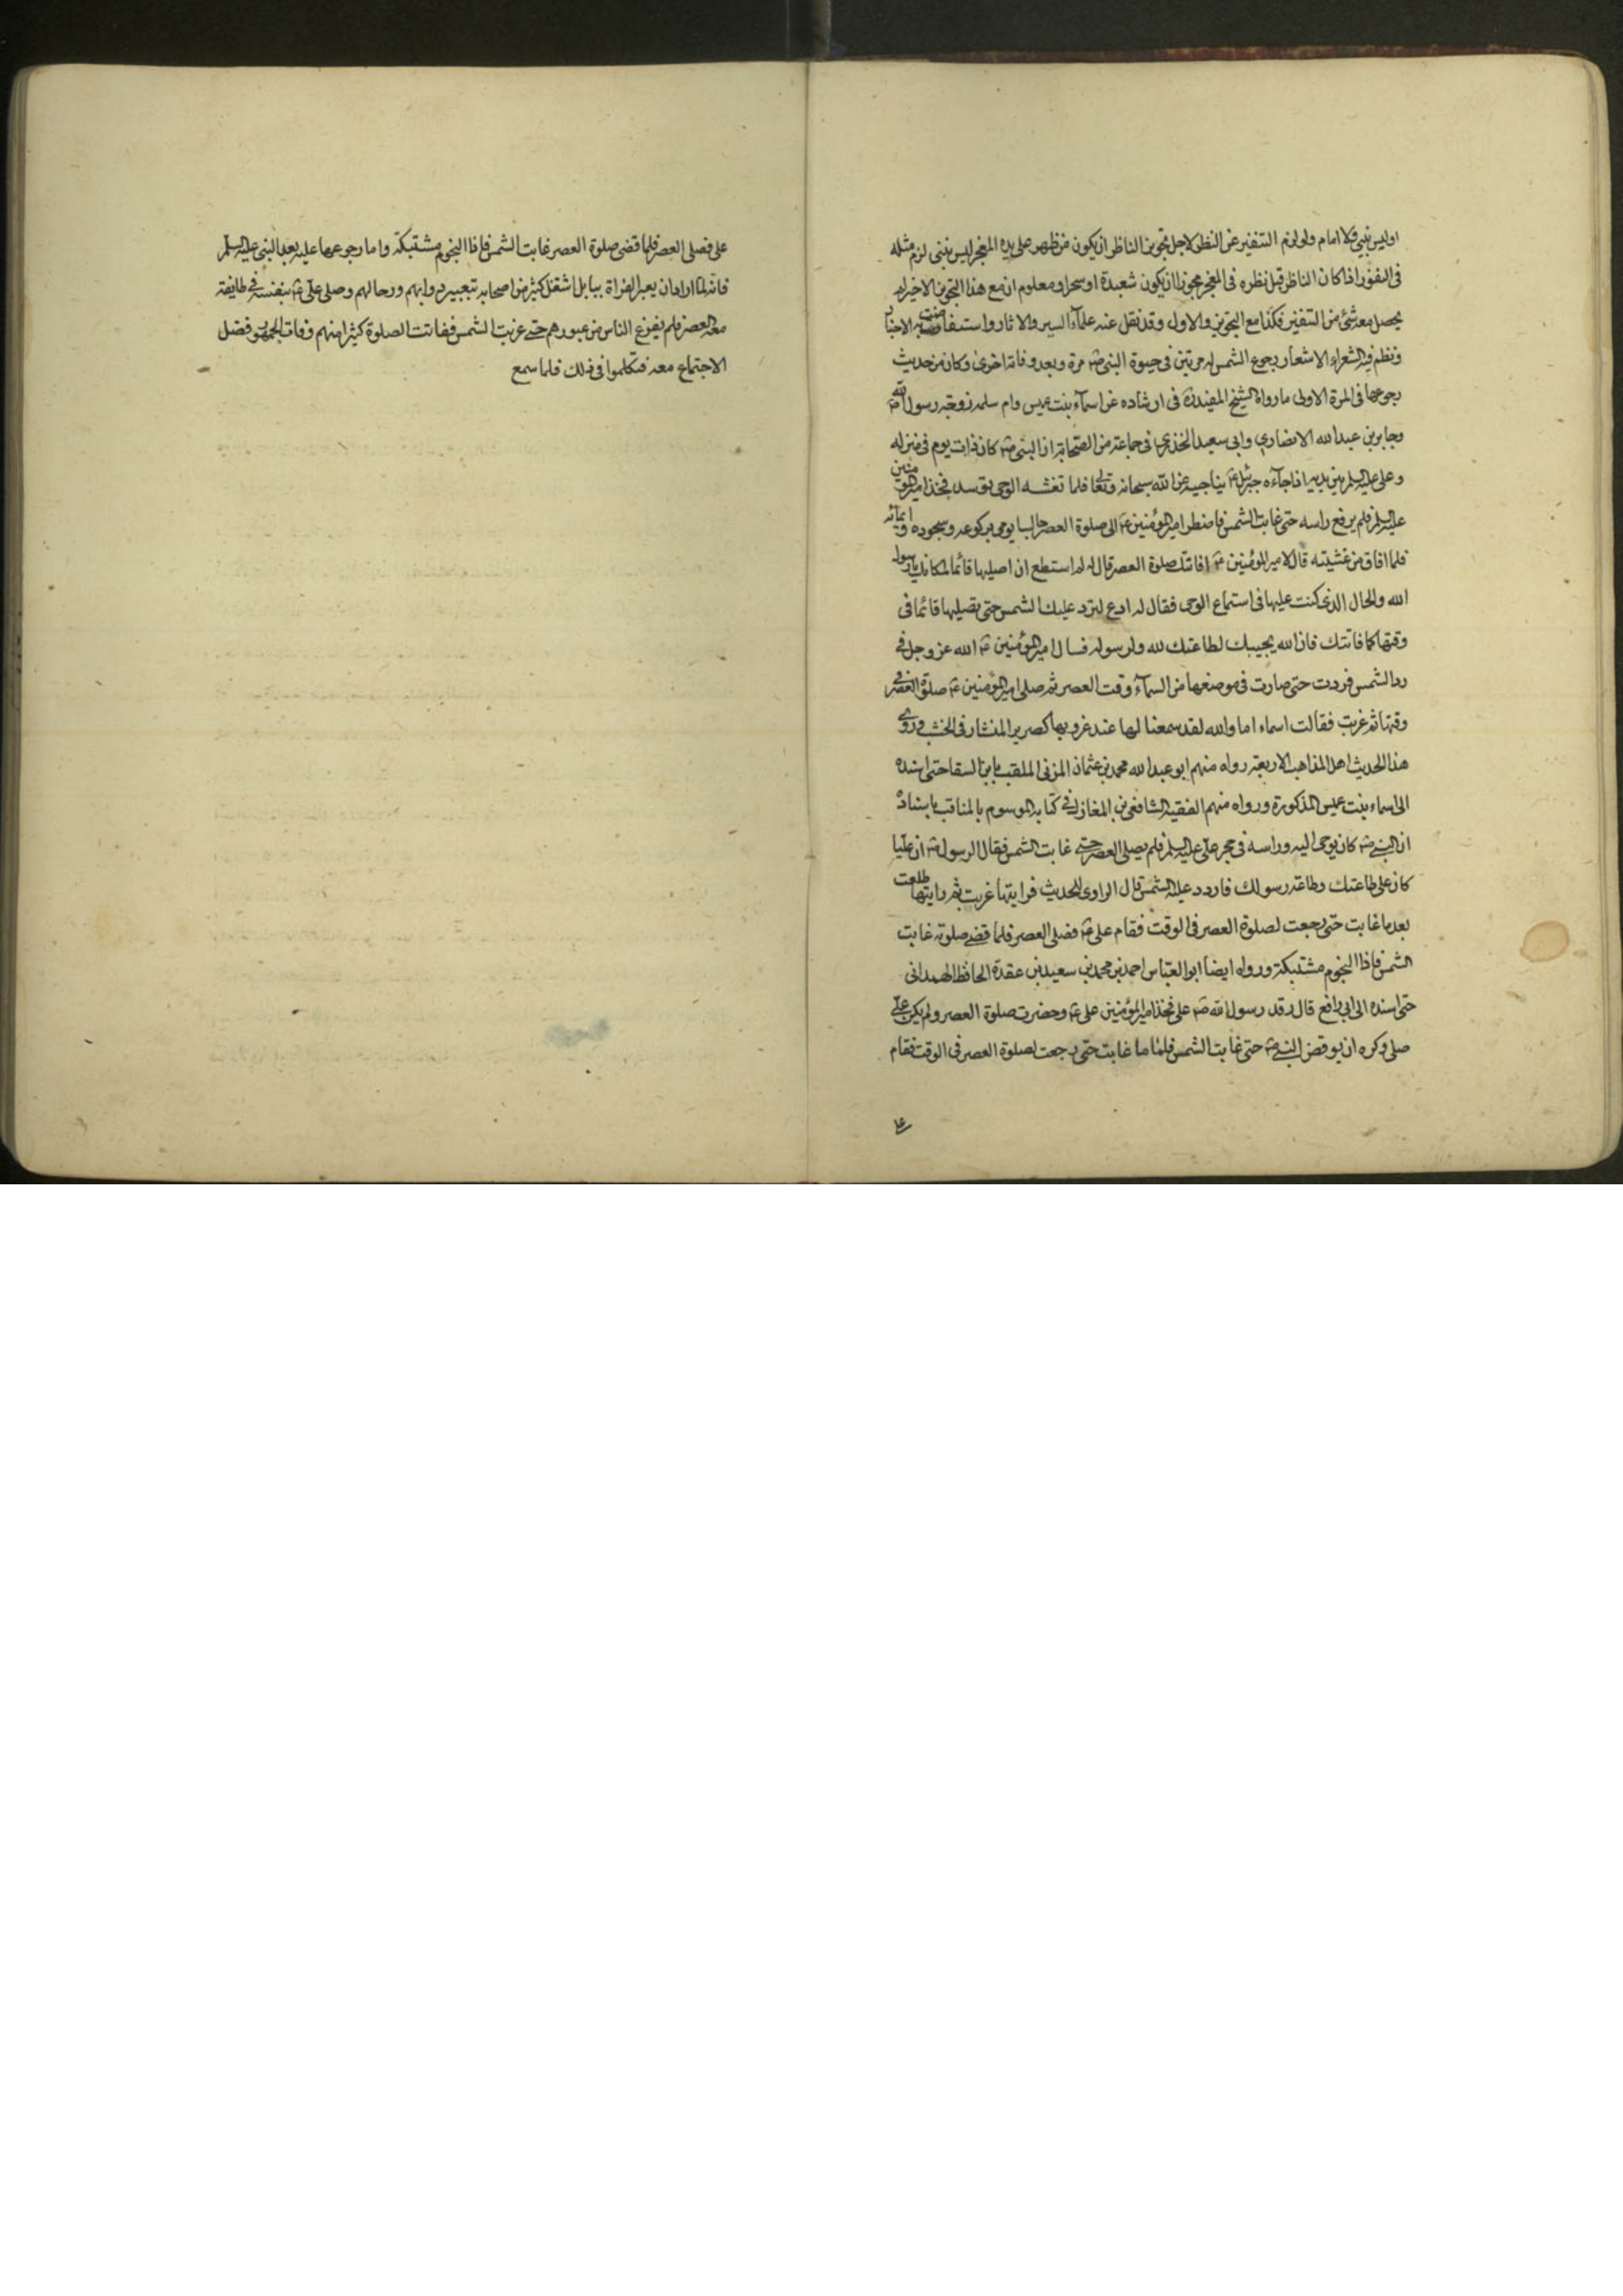 اوليس نبي ولا امام ولو لزم التنفير عن النظر لاجل تجويز الناظر ان يكون من ظهر على يده المعجز ليس بنبي لزم مثله
في النفور اذا كان الناظر قبل نظره في المعجز مجوزا ان يكون شعبدة او سحرا ومعلوم ان مع هذا التجويز الاخير لم
يحصل معه شئ من التنفير فكذا مع التجويز والاول وقد نقل عنه علماء السير والاثار واستفاضت به الاخبار
ونظم فيه الشعراء الاشعار رجوع الشمس له مرتين في حيوة النبي ص مرة وبعد وفاته اخرى وكان من حديث
رجوعها في المرة الاولى ما رواه الشيخ المفيد في ارشاده عن اسماء بنت عميس وام سلمه زوجة رسول الله ص
وجابر بن عبد الله الانصاري وابي سعيد الخذري في جماعة من الصحابة ان النبي ص كان ذات يوم في منزله
وعلى عليه السلم بين يديه اذا جاءه جبرئيل ع يناجيه عن الله سبحانه وتعا فلما تغشه الوحى توسد فخذ امير المؤمنين
عليه السلم فلم يرفع راسه حتى غابت الشمس فاضطر امير المؤمنين ع الى صلوة العصر جالسا يومى بركوعه وسجوده ايمائه
فلما افاق من غشيته قال لامير المؤمنين ع افاتتك صلوة العصر قال له لم استطع ان اصليها قائما لمكانك يا رسول
الله والحال الذي كنت عليها في استماع الوحى فقال له ادع ليرد عليك الشمس حتى تصليها قائما في
وقتها كما فاتتك فان الله يجيبك لطاعتك لله ولرسوله فسال امير المؤمنين ع الله عز وجل في
رد الشمس فردت حتى صارت في موضعها من السماء وقت العصر ثم صلى امير المؤمنين ع صلوة العصر في
وقتها ثم غربت فقالت اسماء اما والله لقد سمعنا لها عند غروبها كصرير المنشار في الخشب وروى
هذا الحديث اهل المذاهب الاربعة رواه منهم ابو عبد الله محمد بن عثمان المزنى الملقب بابن السقا حتى اسنده
الى اسماء بنت عميس المذكورة ورواه منهم الفقيه الشافعى بن المغازلي في كتابه الموسوم بالمناقب باسناده
ان النبي ص كان يوحى اليه وراسه في حجر علي عليه السلم فلم يصلى العصر حتى غابت الشمس فقال الرسول ص ان عليا
كان على طاعتك وطاعة رسولك فاردد عليه الشمس قال الراوى للحديث فرايتها غربت ثم رايتها طلعت
بعد ما غابت حتى رجعت لصلوة العصر في الوقت فقام على ع فصلى العصر فلما قضى صلوته غابت
الشمس فاذا النجوم مشتبكة ورواه ايضا ابو العباس احمد بن محمد بن سعيد بن عقدة الحافظ الهمداني
حتى اسنده الى ابي رافع قال رقد رسول الله ص على فخذ امير المؤمنين على ع وحضرت صلوة العصر ولم يكن علي
صلى وكره ان يوقض النبي ص حتى غابت الشمس فلما ما غابت حتى رجعت لصلوة العصر في الوقت فقام
على
على فصلى العصر فلما قضى صلوة العصر غابت الشمس فاذا النجوم مشتبكة واما رجوعها عليه بعد النبي عليه السلم
فانه لما اراد ان يعبر الفراة ببابل اشتغل كثير من اصحابه بتعبير دوابهم ورحالهم وصلى علي ع بنفسه في طايفة
معه العصر فلم يفرغ الناس من عبورهم حتى غربت الشمس ففاتت الصلوة كثيرا منهم وفات الجمهور فضل
الاجتماع معه فتكلموا في ذلك فلما سمع